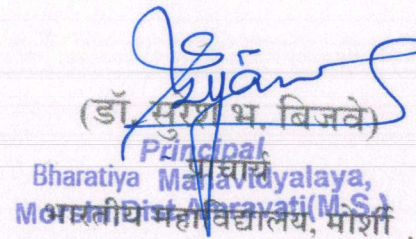 (डॉ. सुरेश भ. बिजवे)
Principal
प्राचार्य
Bharatiya Mahavidyalaya,
Morshi Dist. Amravati (M.S.)
भारतीय महाविद्यालय, मोर्शी